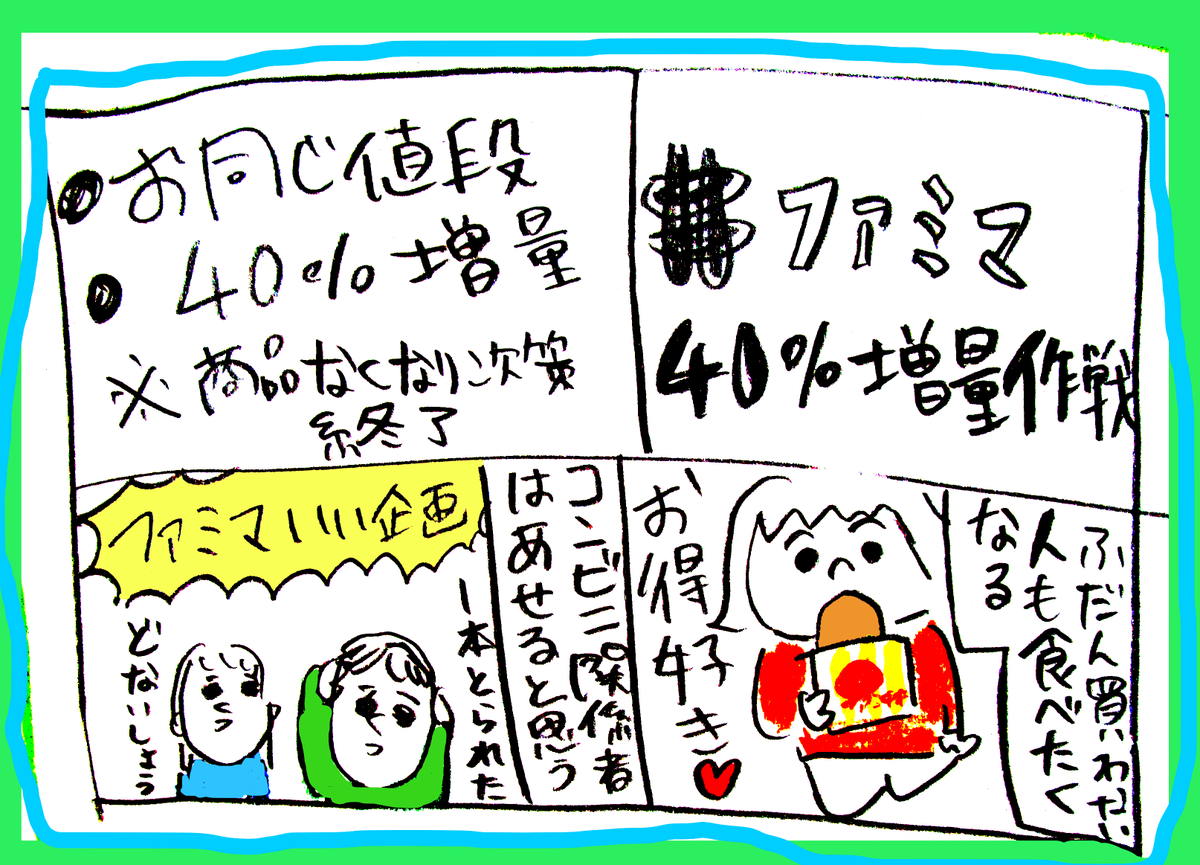 ファミマ
40%増量作戦
お同じ値段
40%増量
※商品なくなり次第
終了
ふだん買いわない
人も食べたく
なる
お得好き
コンビニ関係者
はあせると思う
ファミマいい企画
一本とられた
どないしよう